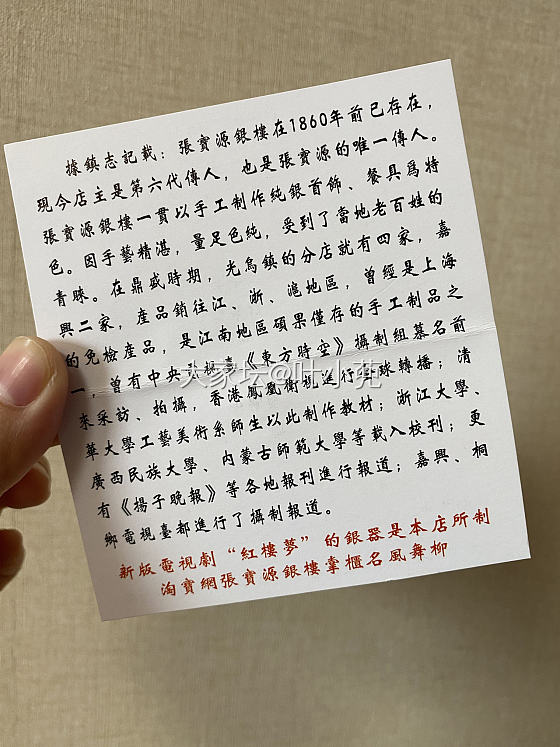 據鎮志記載：張寶源銀樓在1860年前已存在，
現今店主是第六代傳人，也是張寶源的唯一傳人。
張寶源銀樓一貫以手工制作純銀首飾、餐具爲特
色。因手藝精湛，量足色純，受到了當地老百姓的
青睞。在鼎盛時期，光烏鎮的分店就有四家，嘉
興二家，産品銷往江、浙、滬地區，曾經是上海
的免檢産品，是江南地區碩果僅存的手工制品之
一，曾有中央電視臺《東方時空》攝制組慕名前
來采訪、拍攝，香港鳳凰衛視進行全球轉播；清
華大學工藝美術系師生以此制作教材；浙江大學、
廣西民族大學、内蒙古師範大學等載入校刊；更
有《揚子晚報》等各地報刊進行報道；嘉興、桐
鄉電視臺都進行了攝制報道。
新版電視劇“紅樓夢”的銀器是本店所制
淘寶網張寶源銀樓掌櫃名風舞柳
大家坛@叶小苑